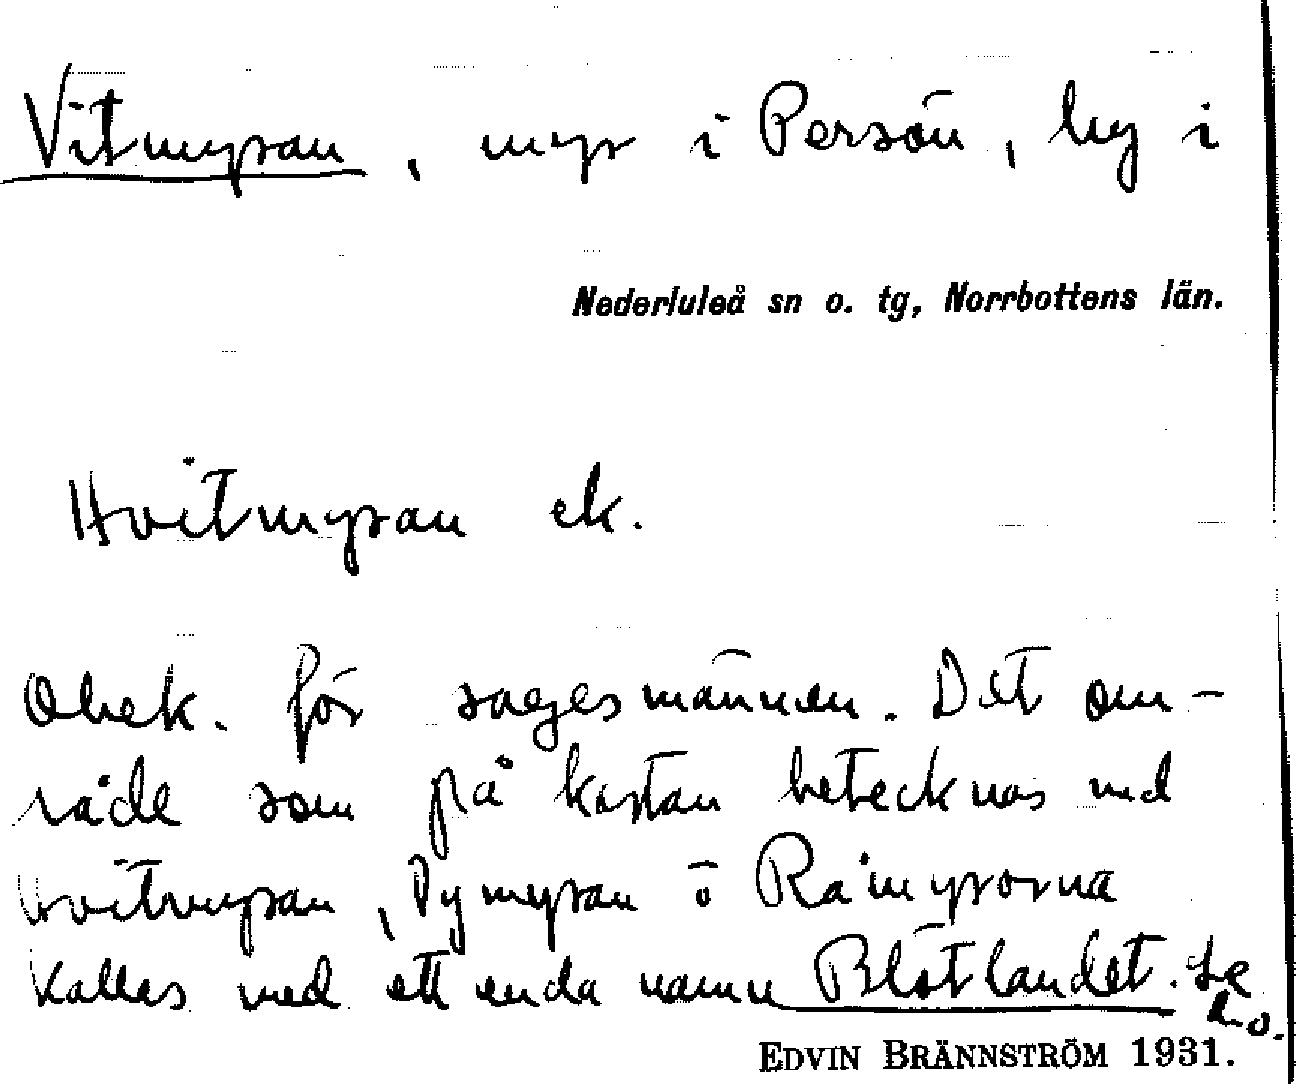 Vitmyran, myr i Persön, by i
Nederluleå sn o. tg, Norrbottens län.
Hvitmyran ek.
Obek. för sagesmännen. Det om-
råde som på kartan betecknas med
Hvitmyran, Pymyran o Råmyrorna
kallas med ett enda namn Blötlandet. Se
d.o.
EDVIN BRÄNNSTRÖM 1931.